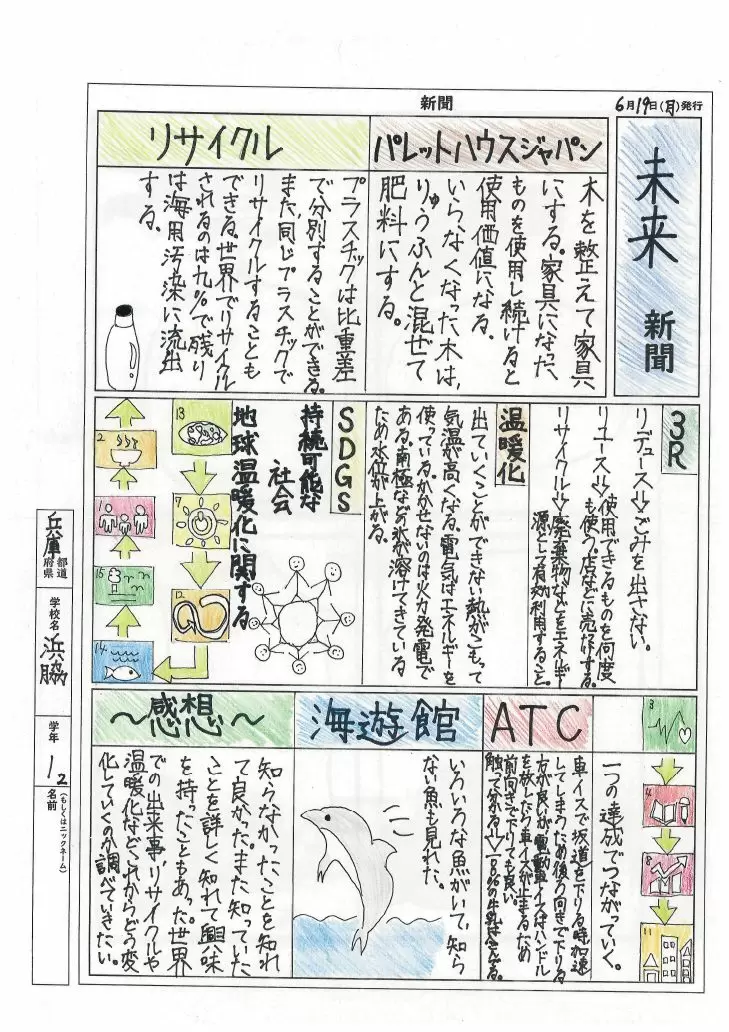 新聞
6月19日(月)発行
未来
新聞
パレットハウスジャパン
木を整えて家具
にする。家具になった、
ものを使用し続けると
使用価値になる。
いらなくなった木は、
りゅうふんと混ぜて
肥料にする。
リサイクル
プラスチックは比重差
で分別することができる。
また、同じプラスチックで
リサイクルすることも
できる。世界でリサイクル
されるのは九%で残り
は海用汚染に流出
する。
3R
リデュース⇒ごみを出さない。
リユース⇒使用できるものを何度
も使う。店などに売却する。
リサイクル⇒廃棄物などをエネルギー
源として有効利用すること。
温暖化
出ていくことができない熱がこもって
気温が高くなる。電気はエネルギーを
使っている。かかせないのは火力発電で
ある。南極などの氷が溶けてきている
ため水位が上がる。
SDGS
持続可能な
社会
地球温暖化に関する
13
7
12
14
15
1
2
3
4
8
11
一つの達成でつながっていく。
ATC
車イスで坂道を下りる時加速
してしまうため後ろ向きで下りる
方が良いが、電動車イスはハンドル
を放したら車イスが止まるため
前向きで下りても良い。
触って分かる⇒
海遊館
いろいろな魚がいて、知ら
ない魚も見れた。
〜感想〜
知らなかったことを知れ
て良かた。また知っていた
ことを詳しく知れて興味
を持ったこともあった。世界
での出来事、リサイクルや
温暖化などこれからどう変
化していくのか調べていきたい。
兵庫
都道
府県
学校名
浜脇
学年
1
2
名前
(もしくはニックネーム)